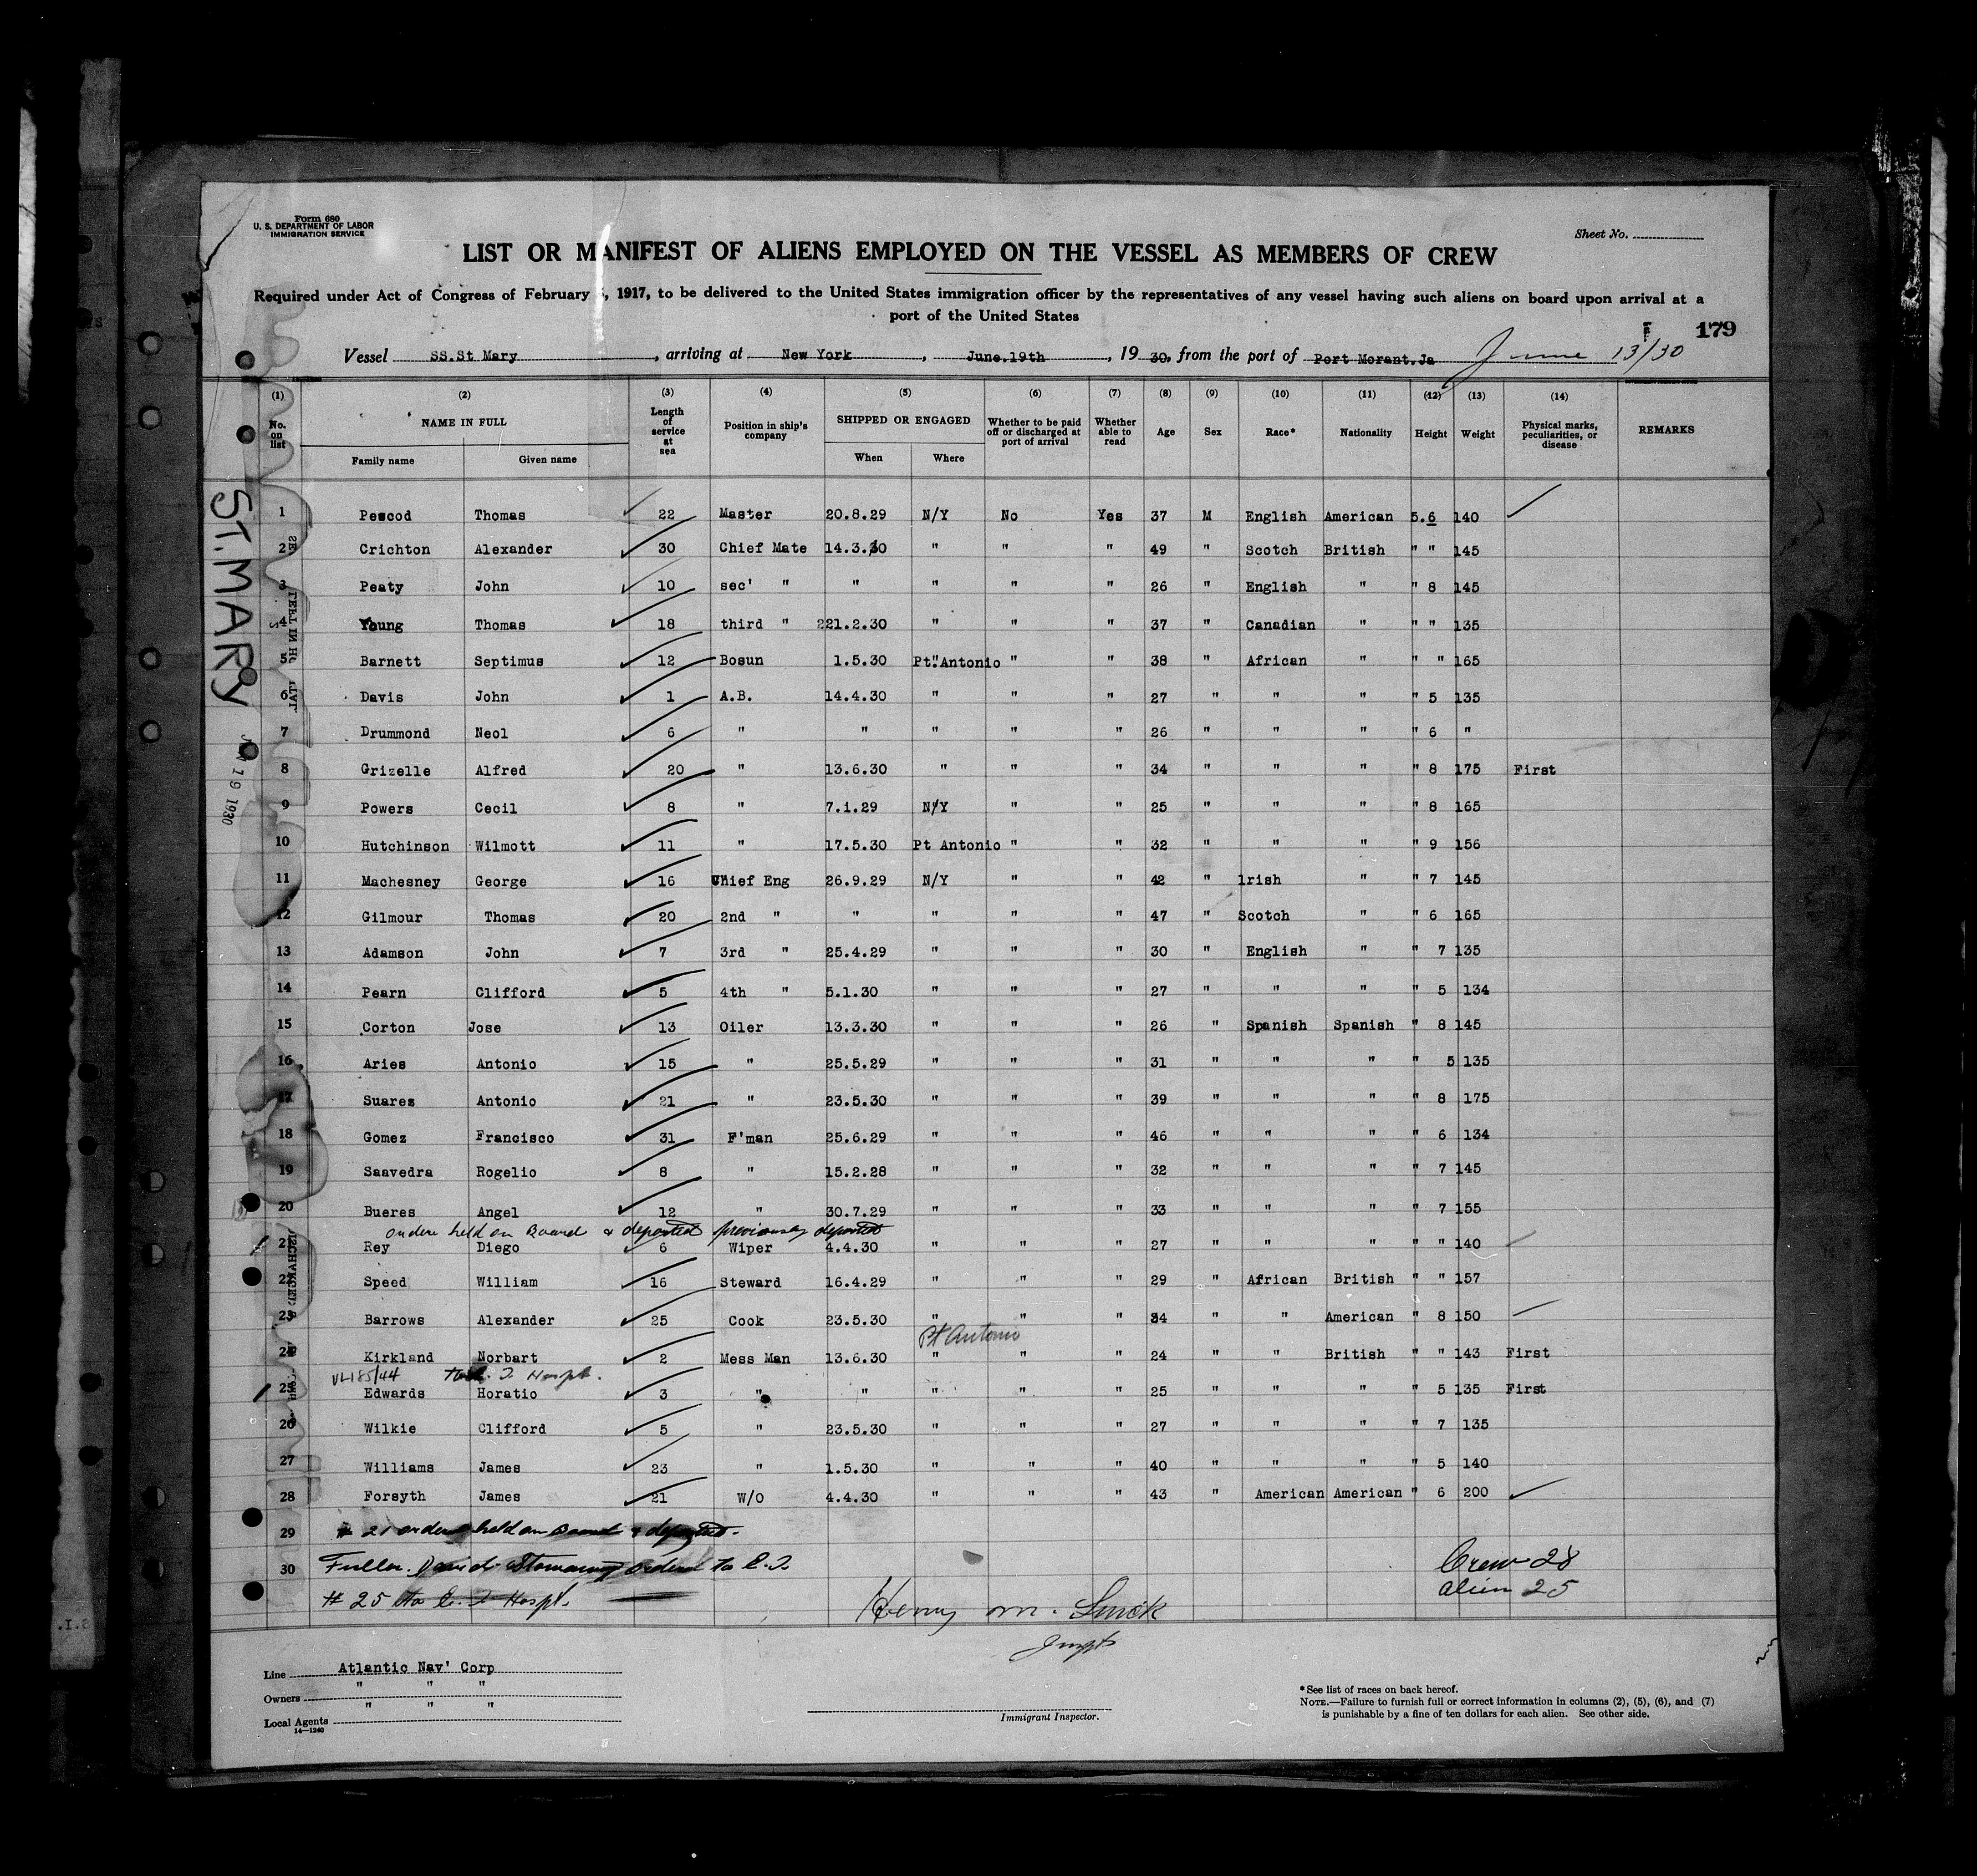 Form 680
U. S. DEPARTMENT OF LABOR
IMMIGRATION SERVICE
Sheet No.
LIST OR MANIFEST OF ALIENS EMPLOYED ON THE VESSEL AS MEMBERS OF CREW
Required under Act of Congress of February , 1917, to be delivered to the United States immigration officer by the representatives of any vessel having such aliens on board upon arrival at a
port of the United States
179
Vessel SS.St Mary, arriving at New York, June.19th, 19 30, from the port of Port Morant.Ja June 13/30
(1) (2) (3) (4) (5) (6) (7) (8) (9) (10) (11) (12) (13) (14)
No. on list NAME IN FULL Length of service at sea Position in ship's company SHIPPED OR ENGAGED Whether to be paid off or discharged at port of arrival Whether able to read Age Sex Race* Nationality Height Weight Physical marks, peculiarities, or disease REMARKS
Family name Given name When Where
ST. MARY
1 Pescod Thomas 22 Master 20.8.29 N/Y No Yes 37 M English American 5.6 140
2 Crichton Alexander 30 Chief Mate 14.3.30 " " " 49 " Scotch British " " 145
3 Peaty John 10 sec' " " " " " 26 " English " " 8 145
4 Young Thomas 18 third " 221.2.30 " " " 37 " Canadian " " " 135
5 Barnett Septimus 12 Bosun 1.5.30 Pt. Antonio " " 38 " African " " " 165
6 Davis John 1 A.B. 14.4.30 " " " 27 " " " " 5 135
7 Drummond Neol 6 " " " " " 26 " " " " 6 "
8 Grizelle Alfred 20 " 13.6.30 " " " 34 " " " " 8 175 First
9 Powers Cecil 8 " 7.1.29 N/Y " " 25 " " " " 8 165
10 Hutchinson Wilmott 11 " 17.5.30 Pt Antonio " " 32 " " " " 9 156
11 Machesney George 16 Chief Eng 26.9.29 N/Y " " 42 " Irish " " 7 145
12 Gilmour Thomas 20 2nd " " " " " 47 " Scotch " " 6 165
13 Adamson John 7 3rd " 25.4.29 " " " 30 " English " " 7 135
14 Pearn Clifford 5 4th " 5.1.30 " " " 27 " " " " 5 134
15 Corton Jose 13 Oiler 13.3.30 " " " 26 " Spanish Spanish " 8 145
16 Aries Antonio 15 " 25.5.29 " " " 31 " " " " 5 135
17 Suarez Antonio 21 " 23.5.30 " " " 39 " " " " 8 175
18 Gomez Francisco 31 F'man 25.6.29 " " " 46 " " " " 6 134
19 Saavedra Rogelio 8 " 15.2.28 " " " 32 " " " " 7 145
20 Bueres Angel 12 " 30.7.29 " " " 33 " " " " 7 155
ordere held on Board & deported previously deported
21 Rey Diego 6 Wiper 4.4.30 " " " 27 " " " " " 140
22 Speed William 16 Steward 16.4.29 " " " 29 " African British " " 157
23 Barrows Alexander 25 Cook 23.5.30 " " " 34 " " American " 8 150
Pt Antonio
24 Kirkland Norbart 2 Mess Man 13.6.30 " " " 24 " " British " " 143 First
Hospt.
25 Edwards Horatio 3 " " " " " 25 " " " " 5 135 First
26 Wilkie Clifford 5 " 23.5.30 " " " 27 " " " " 7 135
27 Williams James 23 " 1.5.30 " " " 40 " " " " 5 140
28 Forsyth James 21 W/O 4.4.30 " " " 43 " American American " 6 200
JUN 19 1930
29 # 21 ordered held on Board & deported.
30 Fuller. David Stowaway ordered to E.I.
# 25 to E. I Hospt.
Crew 28
alien 25
Henry M. Smick
Inspt
Line Atlantic Nav' Corp
Owners " " "
Local Agents " " "
14—1240
Immigrant Inspector.
*See list of races on back hereof.
NOTE.—Failure to furnish full or correct information in columns (2), (5), (6), and (7)
is punishable by a fine of ten dollars for each alien. See other side.